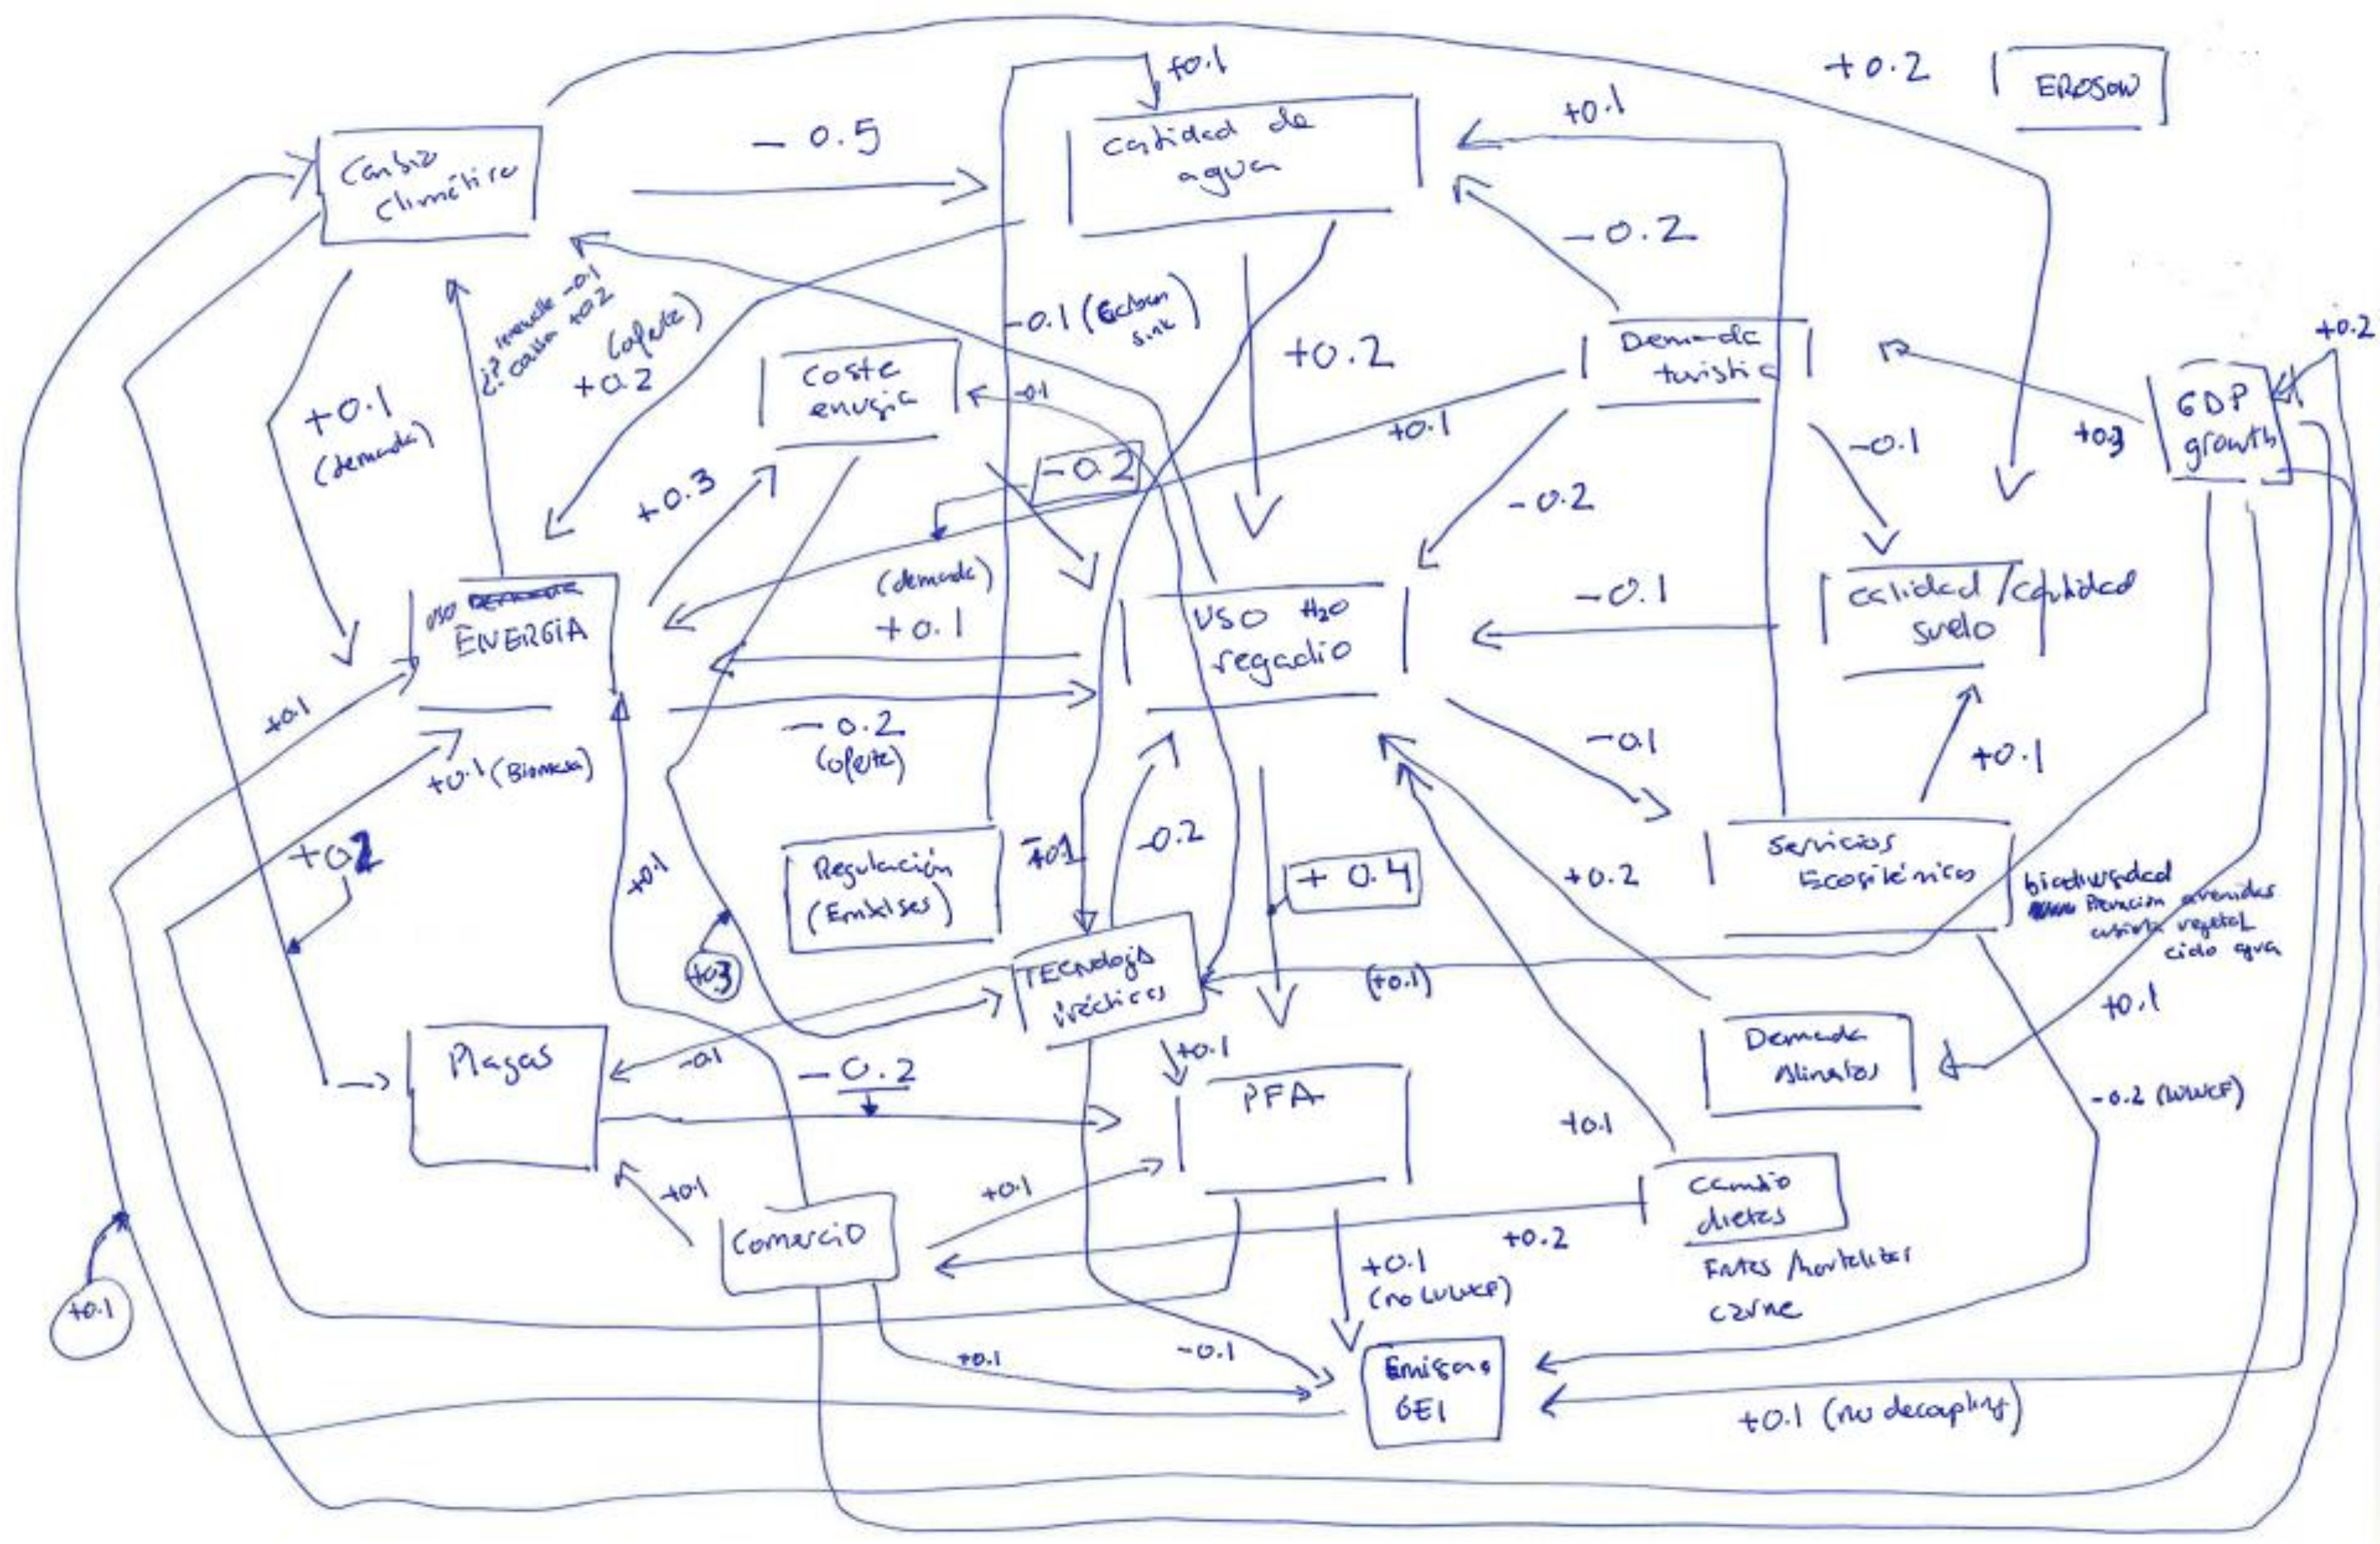 +0.1
+0.2
EROSION
- 0.5
Cantidad de
agua
+0.1
Cambio
Climático
-0.2
-0.1 (
sink)
+0.2
(oferta)
+0.2
Demanda
turistic
+0.2
GDP
growth
+0.3
Coste
energia
-0.1
+0.1
(demanda)
+0.1
-0.1
-0.2
+0.3
-0.2
(demanda)
+0.1
uso
ENERGÍA
USO H2O
regadio
-0.1
calidad/cantidad
suelo
+0.1
-0.2
(oferta)
-0.1
+0.1
+0.1 (Biomasa)
+0.1
-0.2
Regulación
(Embalses)
+ 0.4
+0.2
Servicios
Ecosistémicos
biodiversidad
avenidas
vegetal
ciclo agua
+0.1
+0.3
TECNología
prácticas
(+0.1)
+0.1
Demanda
Alimentos
Plagas
-0.1
- 0.2
+0.1
PFA
-0.2
+0.1
+0.1
+0.1
Comercio
+0.2
Cambio
dietas
Frutas/hortalizas
carne
+0.1
+0.1
+0.1
-0.1
Emisiones
GEI
+0.1 (no decoupling)